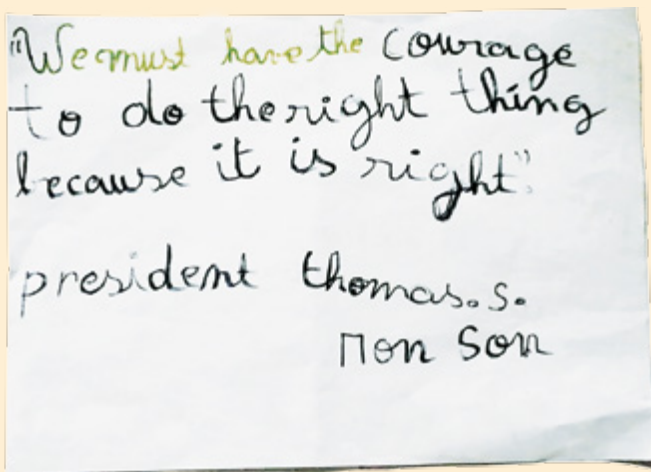 "We must have the courage
to do the right thing
because it is right".
president thomas.s.
mon son